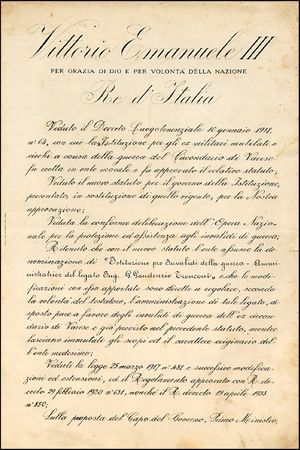 Vittorio Emanuele III
PER GRAZIA DI DIO E PER VOLONTÀ DELLA NAZIONE
Re d'Italia
Veduto il Decreto Luogotenenziale 10 gennaio 1918,
n° 64, con cui la Istituzione per gli ex militari mutilati e
ciechi a causa della guerra del Circondario di Varese
fu eretta in ente morale e fu approvato il relativo statuto;
Veduto il nuovo statuto per il governo della Istituzione,
presentato, in sostituzione di quello vigente, per la Nostra
approvazione;
Veduta la conforme deliberazione dell'Opera Nazio-
nale per la protezione ed assistenza degli invalidi di guerra;
Ritenuto che con il nuovo statuto l'ente assume la de-
nominazione di "Istituzione pro Invalidi della guerra - Ammi-
nistratrice del legato Ing. G. Gaudenzio" e che le modi-
ficazioni con esso apportate sono dirette a regolare, secondo
la volontà del testatore, l'amministrazione di tale legato, di-
sposto pure a favore degli invalidi di guerra dell'ex circon-
dario di Varese e già previsto nel precedente statuto, mentre
lasciano immutati gli scopi ed il carattere originario del-
l'ente medesimo;
Veduti la legge 25 marzo 1917 n° 481 e successive modifica-
zioni ed estensioni, ed il Regolamento approvato con R. de-
creto 29 febbraio 1920 n° 651, nonchè il R. decreto 19 aprile 1923
n° 850;
Sulla proposta del Capo del Governo, Primo Ministro,